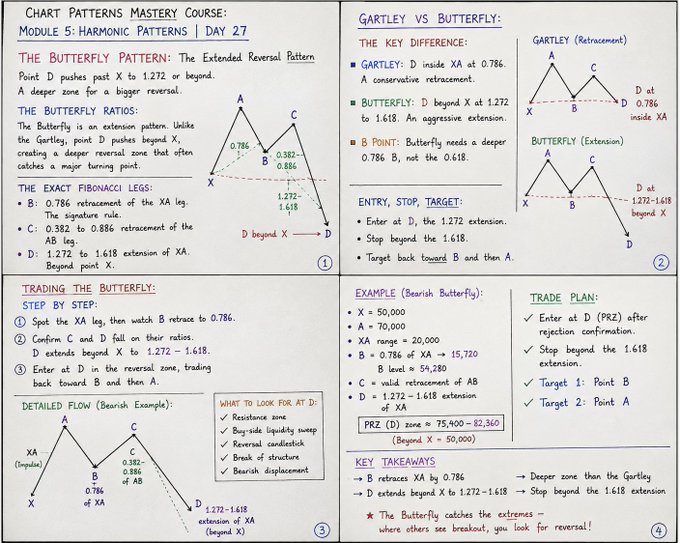 CHART PATTERNS MASTERY COURSE:
MODULE 5: HARMONIC PATTERNS | DAY 27
THE BUTTERFLY PATTERN: The Extended Reversal Pattern
Point D pushes past X to 1.272 or beyond.
A deeper zone for a bigger reversal.
THE BUTTERFLY RATIOS:
The Butterfly is an extension pattern. Unlike
the Gartley, point D pushes beyond X,
creating a deeper reversal zone that often
catches a major turning point.
THE EXACT FIBONACCI LEGS:
• B: 0.786 retracement of the XA leg.
The signature rule.
• C: 0.382 to 0.886 retracement of the
AB leg.
• D: 1.272 to 1.618 extension of XA.
Beyond point X.
A
C
0.786
B
0.382-
0.886
X
1.272-
1.618
D beyond X
D
1
GARTLEY VS BUTTERFLY:
THE KEY DIFFERENCE:
GARTLEY: D inside XA at 0.786.
A conservative retracement.
BUTTERFLY: D beyond X at 1.272
to 1.618. An aggressive extension.
B POINT: Butterfly needs a deeper
0.786 B, not the 0.618.
ENTRY, STOP, TARGET:
• Enter at D, the 1.272 extension.
• Stop beyond the 1.618.
• Target back toward B and then A.
GARTLEY (Retracement)
A
C
X
B
D
D at
0.786
inside XA
BUTTERFLY (Extension)
A
C
X
B
D at
1.272-1.618
beyond X
D
2
TRADING THE BUTTERFLY:
STEP BY STEP:
1 Spot the XA leg, then watch B retrace to 0.786.
2 Confirm C and D fall on their ratios.
D extends beyond X to 1.272 - 1.618.
3 Enter at D in the reversal zone, trading
back toward B and then A.
DETAILED FLOW (Bearish Example):
A
C
XA
(Impulse)
C
0.382-
0.886
of AB
B
0.786
of XA
X
D
1.272-1.618
extension of XA
(beyond X)
WHAT TO LOOK FOR AT D:
✓ Resistance zone
✓ Buy-side liquidity sweep
✓ Reversal candlestick
✓ Break of structure
✓ Bearish displacement
3
EXAMPLE (Bearish Butterfly):
• X = 50,000
• A = 70,000
• XA range = 20,000
• B = 0.786 of XA → 15,720
B level ≈ 54,280
• C = valid retracement of AB
• D = 1.272 - 1.618 extension
of XA
PRZ (D) zone ≈ 75,400 - 82,360
(Beyond X = 50,000)
TRADE PLAN:
✓ Enter at D (PRZ) after
rejection confirmation.
✓ Stop beyond the 1.618
extension.
✓ Target 1: Point B
✓ Target 2: Point A
KEY TAKEAWAYS
→ B retraces XA by 0.786
→ D extends beyond X to 1.272-1.618
→ Deeper zone than the Gartley
→ Stop beyond the 1.618 extension
★ The Butterfly catches the extremes -
where others see breakout, you look for reversal!
4